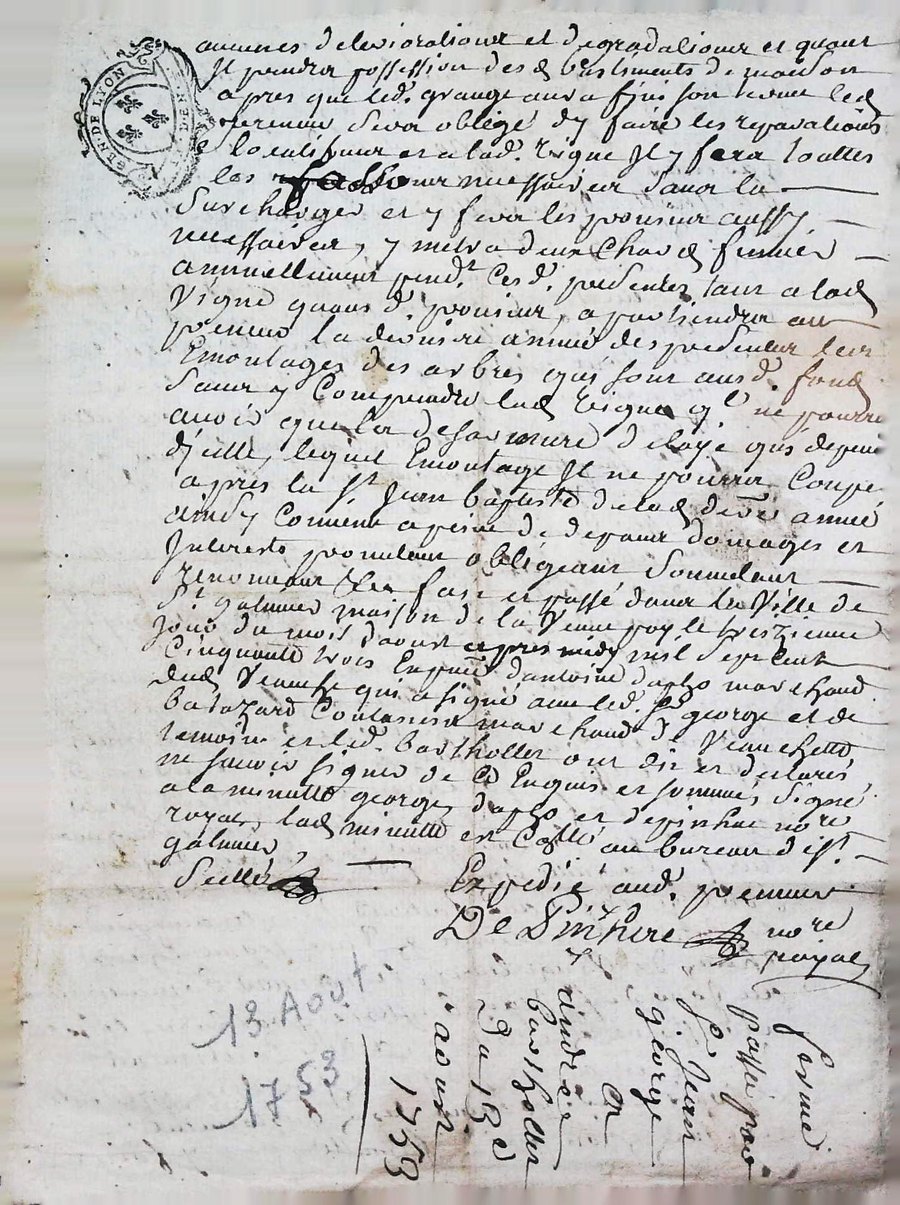 GEN. DE LYON
aucunes deteriorations et degradations et quant
Il prendra possession des d bastiments de maison
apres que led. grange aura fini son
preneur sera obligé dy faire les reparations
et a lad. vigne Il y fera touttes
les neccessaires sans la
surcharger et y fera les prouins aussy
neccessaires, y metra deux Chard fumier
annuellement pendt. Cesd. presentes tant a lad
vigne quaus d. prouins, apartiendra au
preneur la derniere année des presentes les
Emontages des arbres qui sont ausd. fond
sans y Comprendre lad vigne ql ne pourra
avoir que la de qui depend
dicelle, lequel Emontage Il ne pourra Couper
apres la st. Jean baptiste de lad derre année
ainsy Convenu a peine de depans domages et
Interests promettant obligeant soumettant
renonceant &ca fait et passé dans la Ville de
st. galmier maison de la Veuve le treizieme
jour du mois daoust apres midy mil sept cent
Cinquante trois En pnce dantoine marchand
dud Veauche qui a signé avec led. sr george et de
batazard marchand de Veauchette
temoins et led. bartholler ont dit et declarés
ne scavoir signer de ce Enquis et sommés signé
a la minutte george, et depinhac nore
royal, lad minutte est Collé au bureau dist.
galmier
Scellé
Expedié aud. preneur
nore
royal
13 Août
1753
ferme
passé par
sr Jean
george
a
andré
bartholler
Du 13e
aoust
1753